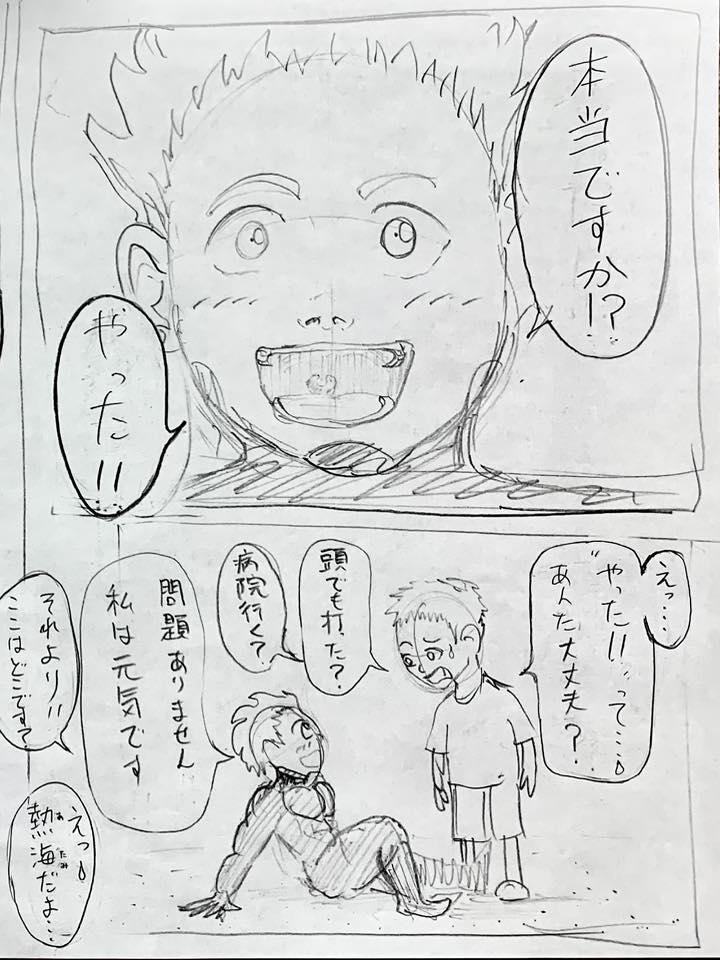 本当ですか!?
やった!!
えっ…
“やった!!”って…。
あんた大丈夫?
頭でも打った?
病院行く?
問題ありません
私は元気です
それより!!
ここはどこですか?
えっ。
熱海だよ…
あたみ